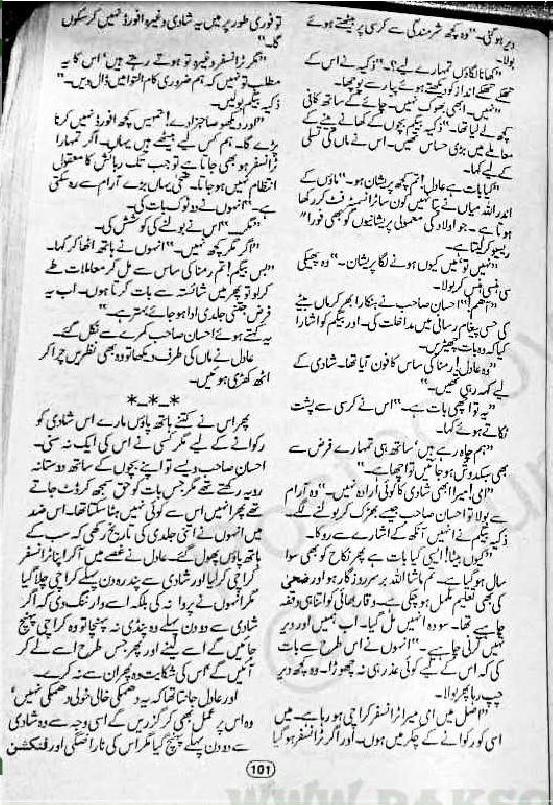 دیر ہو گئی۔" وہ کچھ شرمندگی سے کرسی پر بیٹھتے ہوئے
بولا۔
"کھانا لگاؤں تمہارے لیے؟" ذکیہ نے اس کے
تھکے تھکے انداز کو دیکھتے ہوئے پیار سے پوچھا۔
"نہیں۔ ابھی بھوک نہیں۔ چائے کے ساتھ کافی
کچھ لے لیا تھا۔" ذکیہ بیگم بچوں کے کھانے پینے کے
معاملے میں بڑی حساس تھیں۔ اس نے ماں کی تسلی
کے لیے کہا۔
"کیا بات ہے عادل! تم کچھ پریشان ہو۔" ماؤں کے
اندر اللہ میاں نے پتا نہیں کون سا ٹرانسمیٹر فٹ کر رکھا
ہوتا ہے۔ جو اولاد کی معمولی پریشانیوں کو بھی فورا"
ریسیو کر لیتا ہے۔
"نہیں تو، میں کیوں ہونے لگا پریشان۔" وہ پھیکی
سی ہنسی ہنس کر بولا۔
"اہم!" احسان صاحب نے ہنکارا بھر کر ماں بیٹے
کی حسی پیغام رسانی میں مداخلت کی۔ اور بیگم کو اشارا
کیا کہ وہ بات چھیڑیں۔
"وہ عادل! رمنا کی ساس کا فون آیا تھا۔ شادی کے
لیے کہہ رہی تھیں۔"
"یہ تو اچھی بات ہے۔" اس نے کرسی سے پشت
ٹکاتے ہوئے کہا۔
"ہم چاہ رہے ہیں، ساتھ ہی تمہارے فرض سے
بھی سبکدوش ہو جائیں تو اچھا ہے۔"
"امی! میرا ابھی شادی کا کوئی ارادہ نہیں۔" وہ آرام
سے بولا تو احسان صاحب جیسے بھڑک کر بولنے لگے۔
ذکیہ بیگم نے انہیں آنکھ کے اشارے سے روکا۔
"کیوں بیٹا! ایسی کیا بات ہے پھر نکاح کو بھی سوا
سال ہو گیا ہے۔ تم ماشا اللہ برسر روزگار ہو اور ضحیٰ
کی بھی تعلیم مکمل ہو چکی ہے۔ وقار بھائی کو اتنا ہی وقفہ
چاہیے تھا۔ سو وہ انہیں مل گیا۔ اب ہمیں اور دیر
نہیں کرنی چاہیے۔" انہوں نے اس طرح سے بات
کی کہ اس کے لیے کوئی عذر ہی نہ چھوڑا۔ وہ کچھ دیر
چپ رہا پھر بولا۔
"اصل میں امی میرا ٹرانسفر کراچی ہو رہا ہے۔ میں
اسی کو رکوانے کے چکر میں ہوں۔ اور اگر ٹرانسفر ہو گیا
تو فوری طور پر میں یہ شادی وغیرہ افورڈ نہیں کر سکوں
گا۔"
"مگر ٹرانسفر وغیرہ تو ہوتے رہتے ہیں، اس کا یہ
مطلب تو نہیں کہ ہم ضروری کام التوا میں ڈال دیں۔"
ذکیہ بیگم بولیں۔
"اور دیکھو صاحبزادے! تمہیں کچھ افورڈ نہیں کرنا
پڑے گا۔ ہم کس لیے بیٹھے ہیں یہاں۔ اگر تمہارا
ٹرانسفر ہو بھی جاتا ہے تو جب تک رہائش کا معقول
انتظام نہیں ہو جاتا۔ ضحیٰ یہاں بڑے آرام سے رہ سکتی
ہے۔" انہوں نے دو ٹوک بات کی۔
"مگر۔" اس نے بولنے کی کوشش کی۔
"اگر مگر کچھ نہیں۔" انہوں نے ہاتھ اٹھا کر کہا۔
"بس بیگم! تم رمنا کی ساس سے مل کر معاملات طے
کر لو تو پھر میں شائستہ سے بات کرتا ہوں۔ اب یہ
فرض جتنی جلدی ادا ہو جائے بہتر ہے۔"
یہ کہتے ہوئے احسان صاحب کمرے سے نکل گئے۔
عادل نے ماں کی طرف دیکھا تو وہ بھی نظریں چرا کر
اٹھ کھڑی ہوئیں۔
*-*-*
پھر اس نے کتنے ہاتھ پاؤں مارے اس شادی کو
رکوانے کے لیے مگر کسی نے اس کی ایک نہ سنی۔
احسان صاحب ویسے تو اپنے بچوں کے ساتھ دوستانہ
رویہ رکھتے تھے مگر جس بات کو حق سمجھ کر ڈٹ جاتے
تھے پھر انہیں اس سے کوئی نہیں ہٹا سکتا تھا۔ اس ضد
میں انہوں نے اتنی جلدی کی تاریخ رکھی کہ سب کے
ہاتھ پاؤں پھول گئے۔ عادل نے غصے میں آ کر اپنا ٹرانسفر
کراچی کر لیا اور شادی سے پندرہ دن پہلے کراچی چلا گیا
مگر انہوں نے پروا نہ کی بلکہ اسے وارننگ دی کہ اگر
شادی سے دو دن پہلے وہ پنڈی نہ پہنچا تو وہ کراچی پہنچ
جائیں گے اسے لینے اور پھر جس طرح اسے لے کر
آئیں گے، اس کی شکایت وہ پھر ان سے نہ کرے۔
اور عادل جانتا تھا کہ یہ دھمکی خالی خولی دھمکی نہیں،
وہ اس پر عمل بھی کر گزریں گے اسی وجہ سے وہ شادی
سے دو دن پہلے پہنچ گیا مگر اس کی ناراضگی اور فنکشن
101